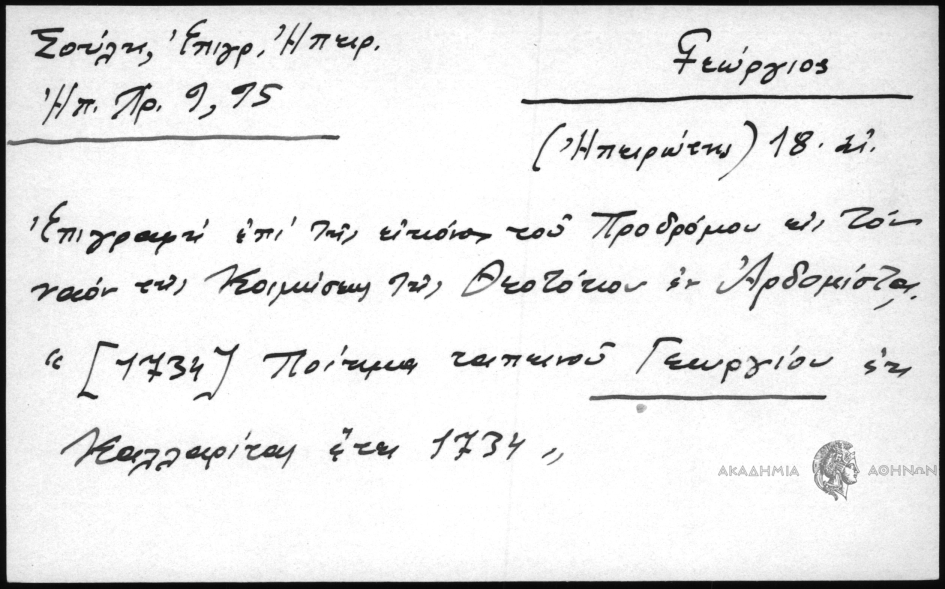 Σούλη, Ἐπιγρ. Ἠπειρ.
Ἠπ. Χρ. 9, 95
Γεώργιος
(Ἠπειρώτης) 18. αἰ.
Ἐπιγραφὴ ἐπὶ τῆς εἰκόνος τοῦ Προδρόμου εἰς τὸν
ναὸν τῆς Κοιμήσεως τῆς Θεοτόκου ἐν Ἀρδομίστᾳ.
“ [1734] Ποίημα ταπεινοῦ Γεωργίου ἐκ
Καλλαρίτας ἔτει 1734 „
ΑΚΑΔΗΜΙΑ ΑΘΗΝΩΝ